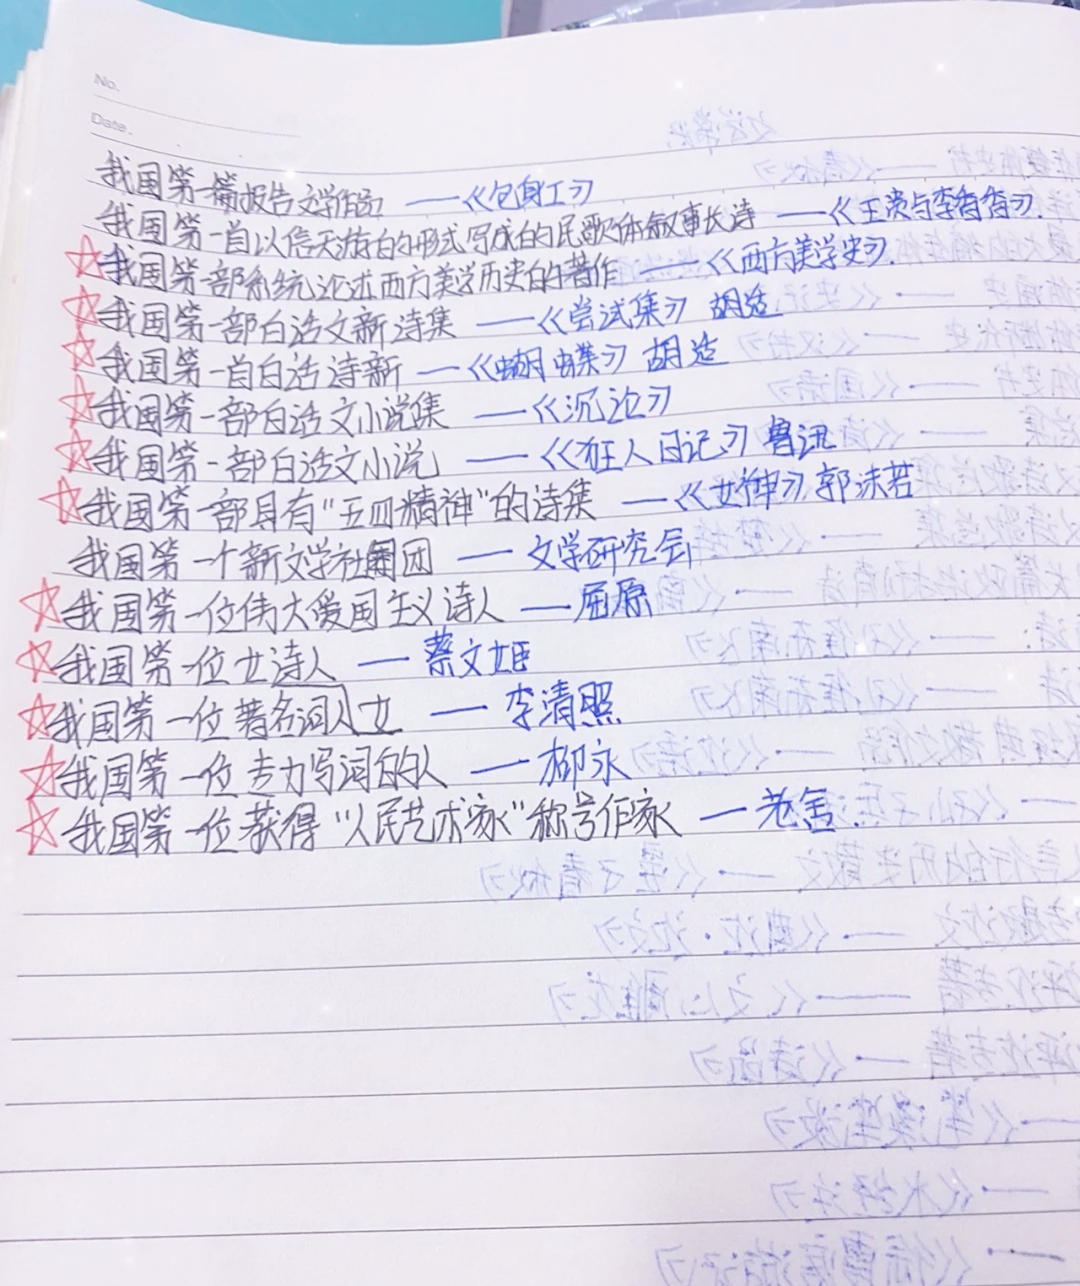 No.
Date.
我国第一篇报告文学作品 ——《包身工》
我国第一首以信天游的形式写成的民歌体叙事长诗 ——《王贵与李香香》.
我国第一部系统论述西方美学历史的著作 ——《西方美学史》.
我国第一部白话文新诗集 ——《尝试集》 胡适
我国第一首白话诗新 ——《蝴蝶》 胡适
我国第一部白话文小说集 ——《沉沦》
我国第一部白话文小说 ——《狂人日记》 鲁迅
我国第一部具有“五四精神”的诗集 ——《女神》 郭沫若
我国第一个新文学社团 —— 文学研究会
我国第一位伟大爱国主义诗人 —— 屈原
我国第一位女诗人 —— 蔡文姬
我国第一位著名词人女 —— 李清照
我国第一位专力写词的人 —— 柳永
我国第一位获得“人民艺术家”称号作家 —— 老舍.